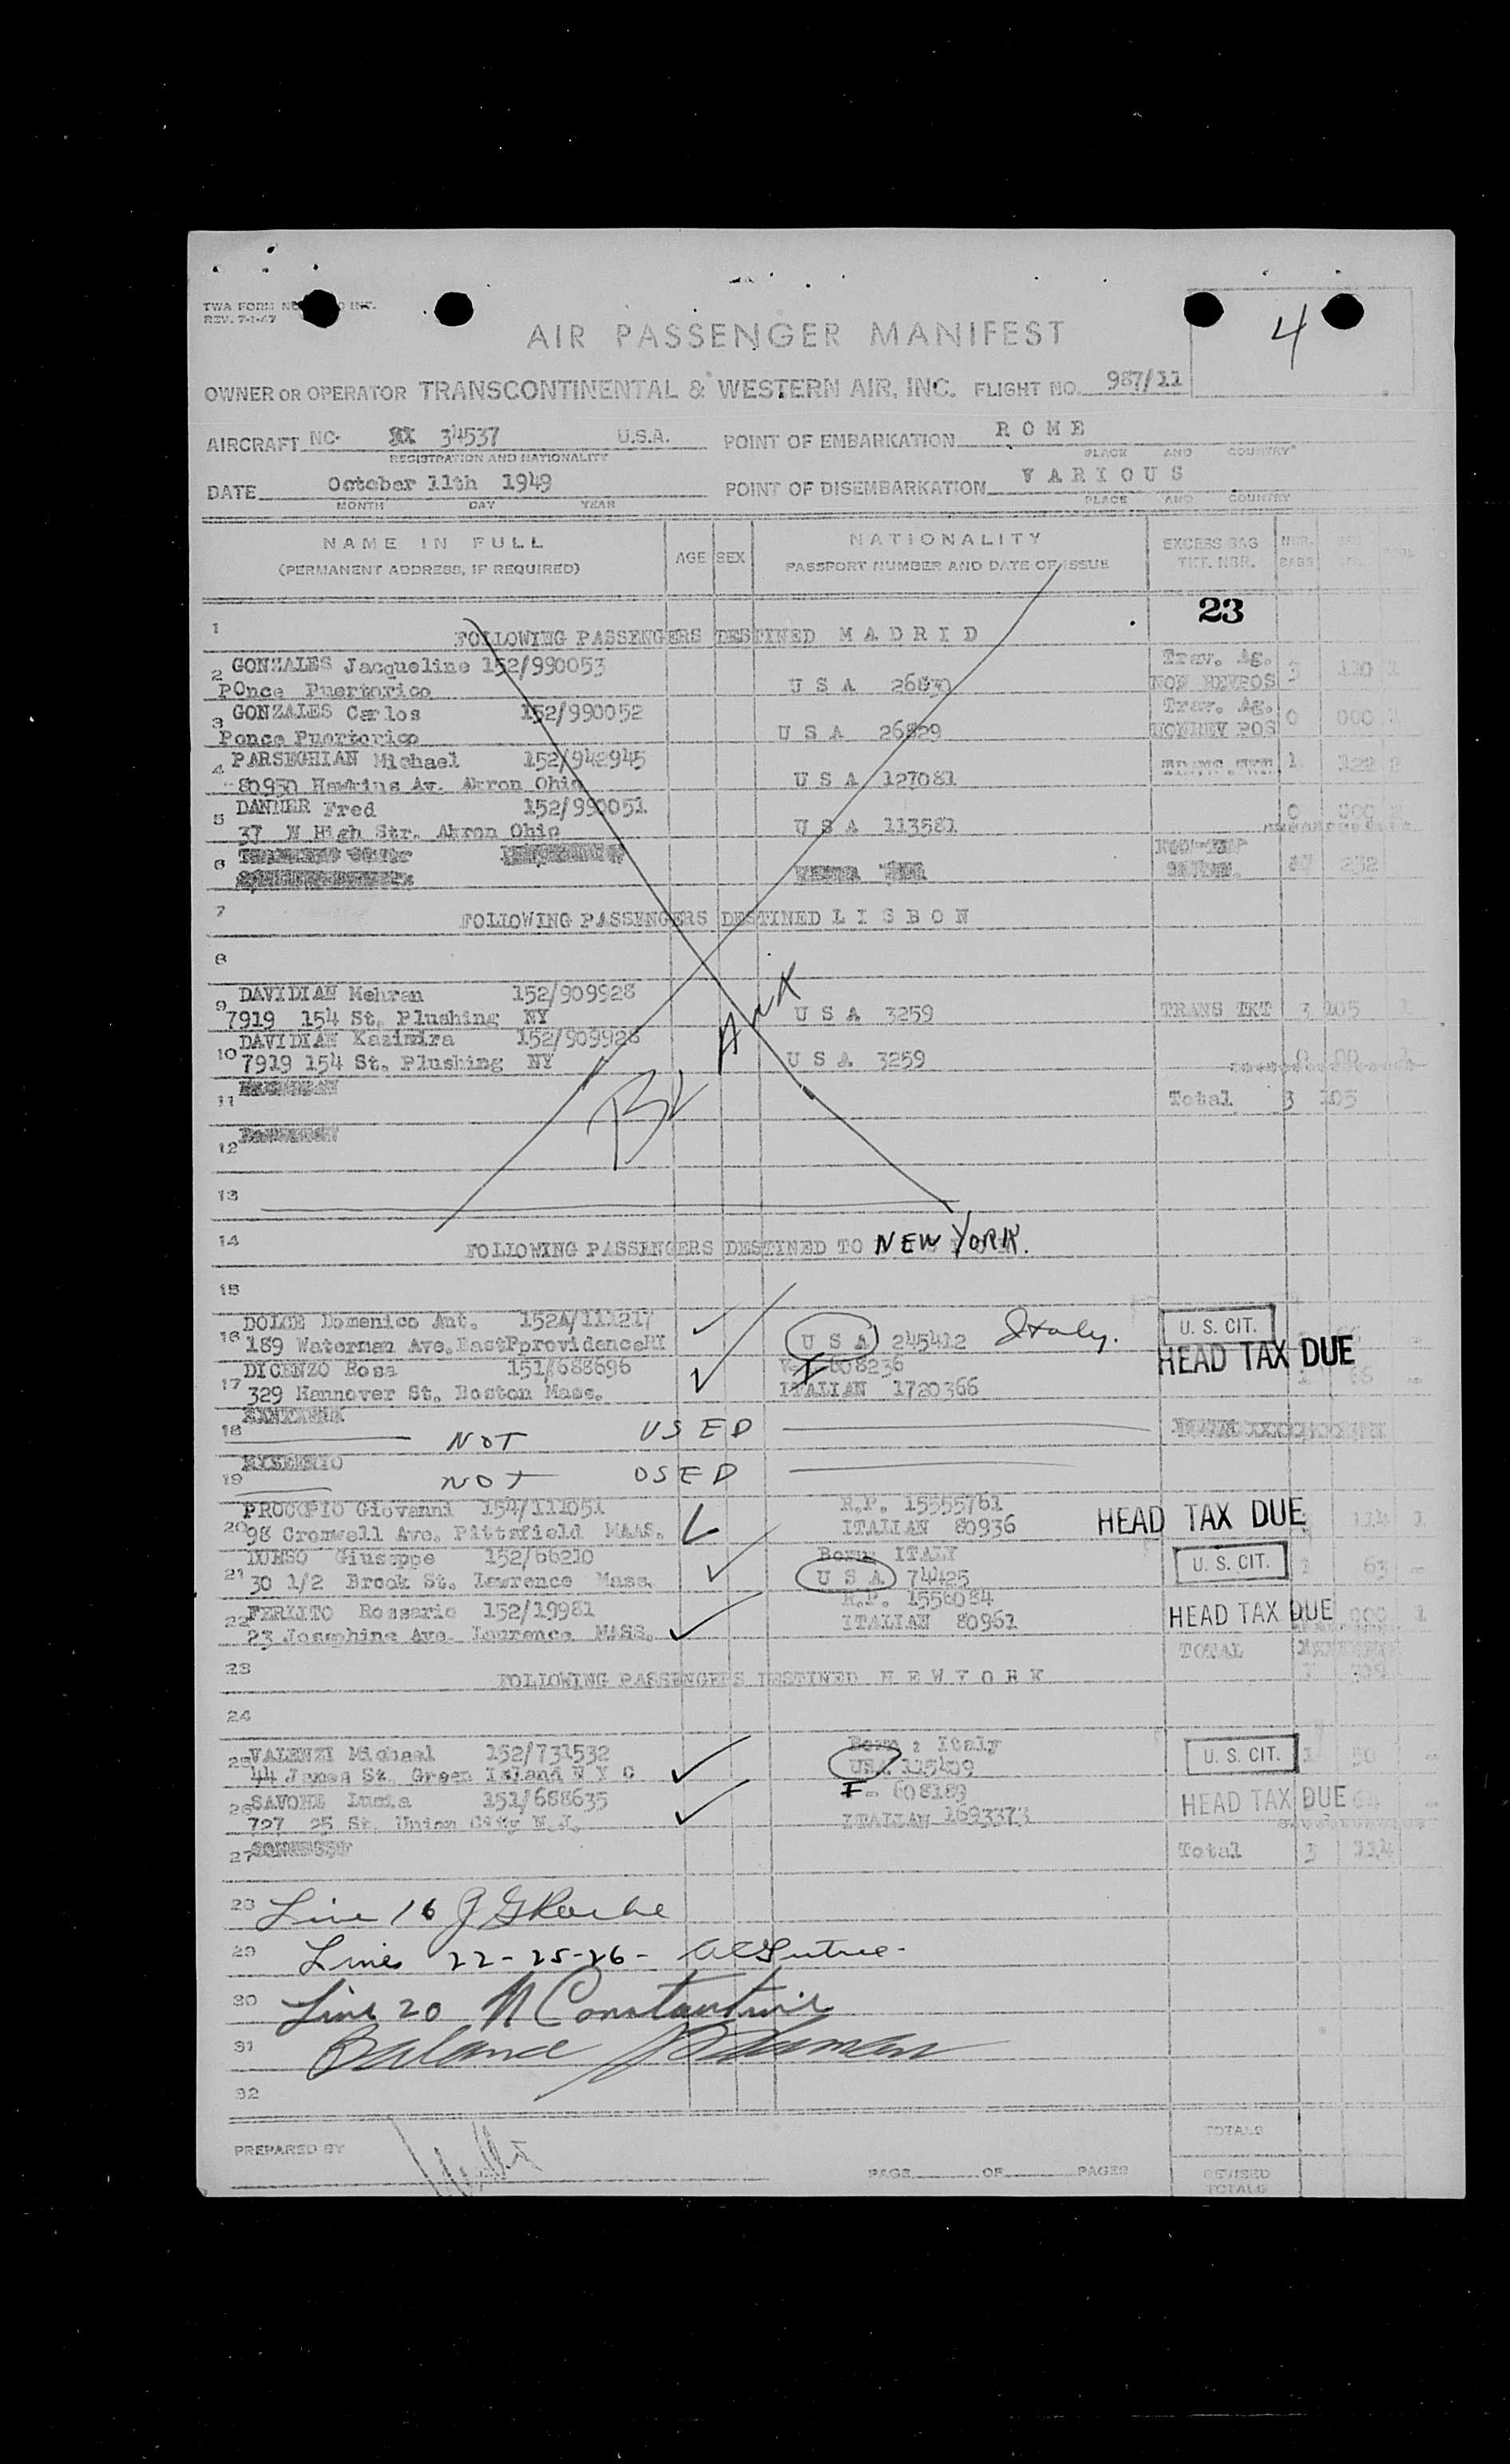 TWA FORM
REV. 7-1-47
4
AIR PASSENGER MANIFEST
OWNER OR OPERATOR TRANSCONTINENTAL & WESTERN AIR, INC. FLIGHT NO. 987/11
AIRCRAFT NC- 34537 U.S.A. POINT OF EMBARKATION R O M E
REGISTRATION AND NATIONALITY PLACE AND COUNTRY
DATE October 11th 1949 POINT OF DISEMBARKATION V A R I O U S
MONTH DAY YEAR PLACE AND COUNTRY
NAME IN FULL AGE SEX NATIONALITY EXCESS BAG NBR.
(PERMANENT ADDRESS, IF REQUIRED) PASSPORT NUMBER AND DATE OF ISSUE TKT. NBR. BAGS
23
1 FOLLOWING PASSENGERS DESTINED M A D R I D
2 GONZALES Jacqueline 152/990053 Trav. Ag. 3 110
POnce Puertorico U S A 26830 NON REVPOS
3 GONZALES Carlos 152/990052 Trav. Ag. 0 000
Ponce Puertorico U S A 26829 NONREV POS
4 PARSEGHIAN Michael 152/942945 1 122
80950 Hawkins Av. Akron Ohio U S A 127081
5 DANNER Fred 152/990051 0 000
37 N High Str. Akron Ohio U S A 113581
6 232
7 FOLLOWING PASSENGERS DESTINED L I S B O N
8
9 DAVIDIAN Mehran 152/909928
7919 154 St. Plushing NY U S A 3259 TRANS TKT 3 105
10 DAVIDIAN Kazimira 152/909928
7919 154 St. Plushing NY U S A 3259
11 Total 3 105
12
13
14 FOLLOWING PASSENGERS DESTINED TO NEW YORK.
15
16 DOLCE Domenico Ant. 152A/111217 U. S. CIT.
189 Waterman Ave.EastPprovidenceRI U S A 245412 Italy.
HEAD TAX DUE
17 DICENZO Rosa 151/688696 608236
329 Hannover St. Boston Mass. ITALIAN 1720366
18 NOT USED
19 NOT USED
20 PROCOPIO Giovanni 154/111051 R.P. 15555761 HEAD TAX DUE 114 1
98 Cromwell Ave. Pittsfield MAAS. ITALIAN 80936
21 DURSO Giuseppe 152/66210 Born ITALY U. S. CIT. 1 63
30 1/2 Brook St. Lawrence Mass. U S A 74425
22 FERLITO Rossario 152/19981 R.P. 1556084 HEAD TAX DUE 000 1
23 Josephine Ave. Lawrence MASS. ITALIAN 80961
TOTAL
23 FOLLOWING PASSENGERS DESTINED N E W Y O R K
24
25 VALENZI Michael 152/731532 Born : Italy U. S. CIT. 1 50
44 James St. Green Island N Y C USA 115409
26 SAVONA Lucia 151/688635 I- 608189 HEAD TAX DUE 64
727 25 St. Union City N.J. ITALIAN 1693373
27 Total 3 114
28 Line 16
29 Lines 22-25-26-
30 Line 20 N Constantine
31
32
TOTALS
PREPARED BY PAGE OF PAGES REVISED
TOTALS